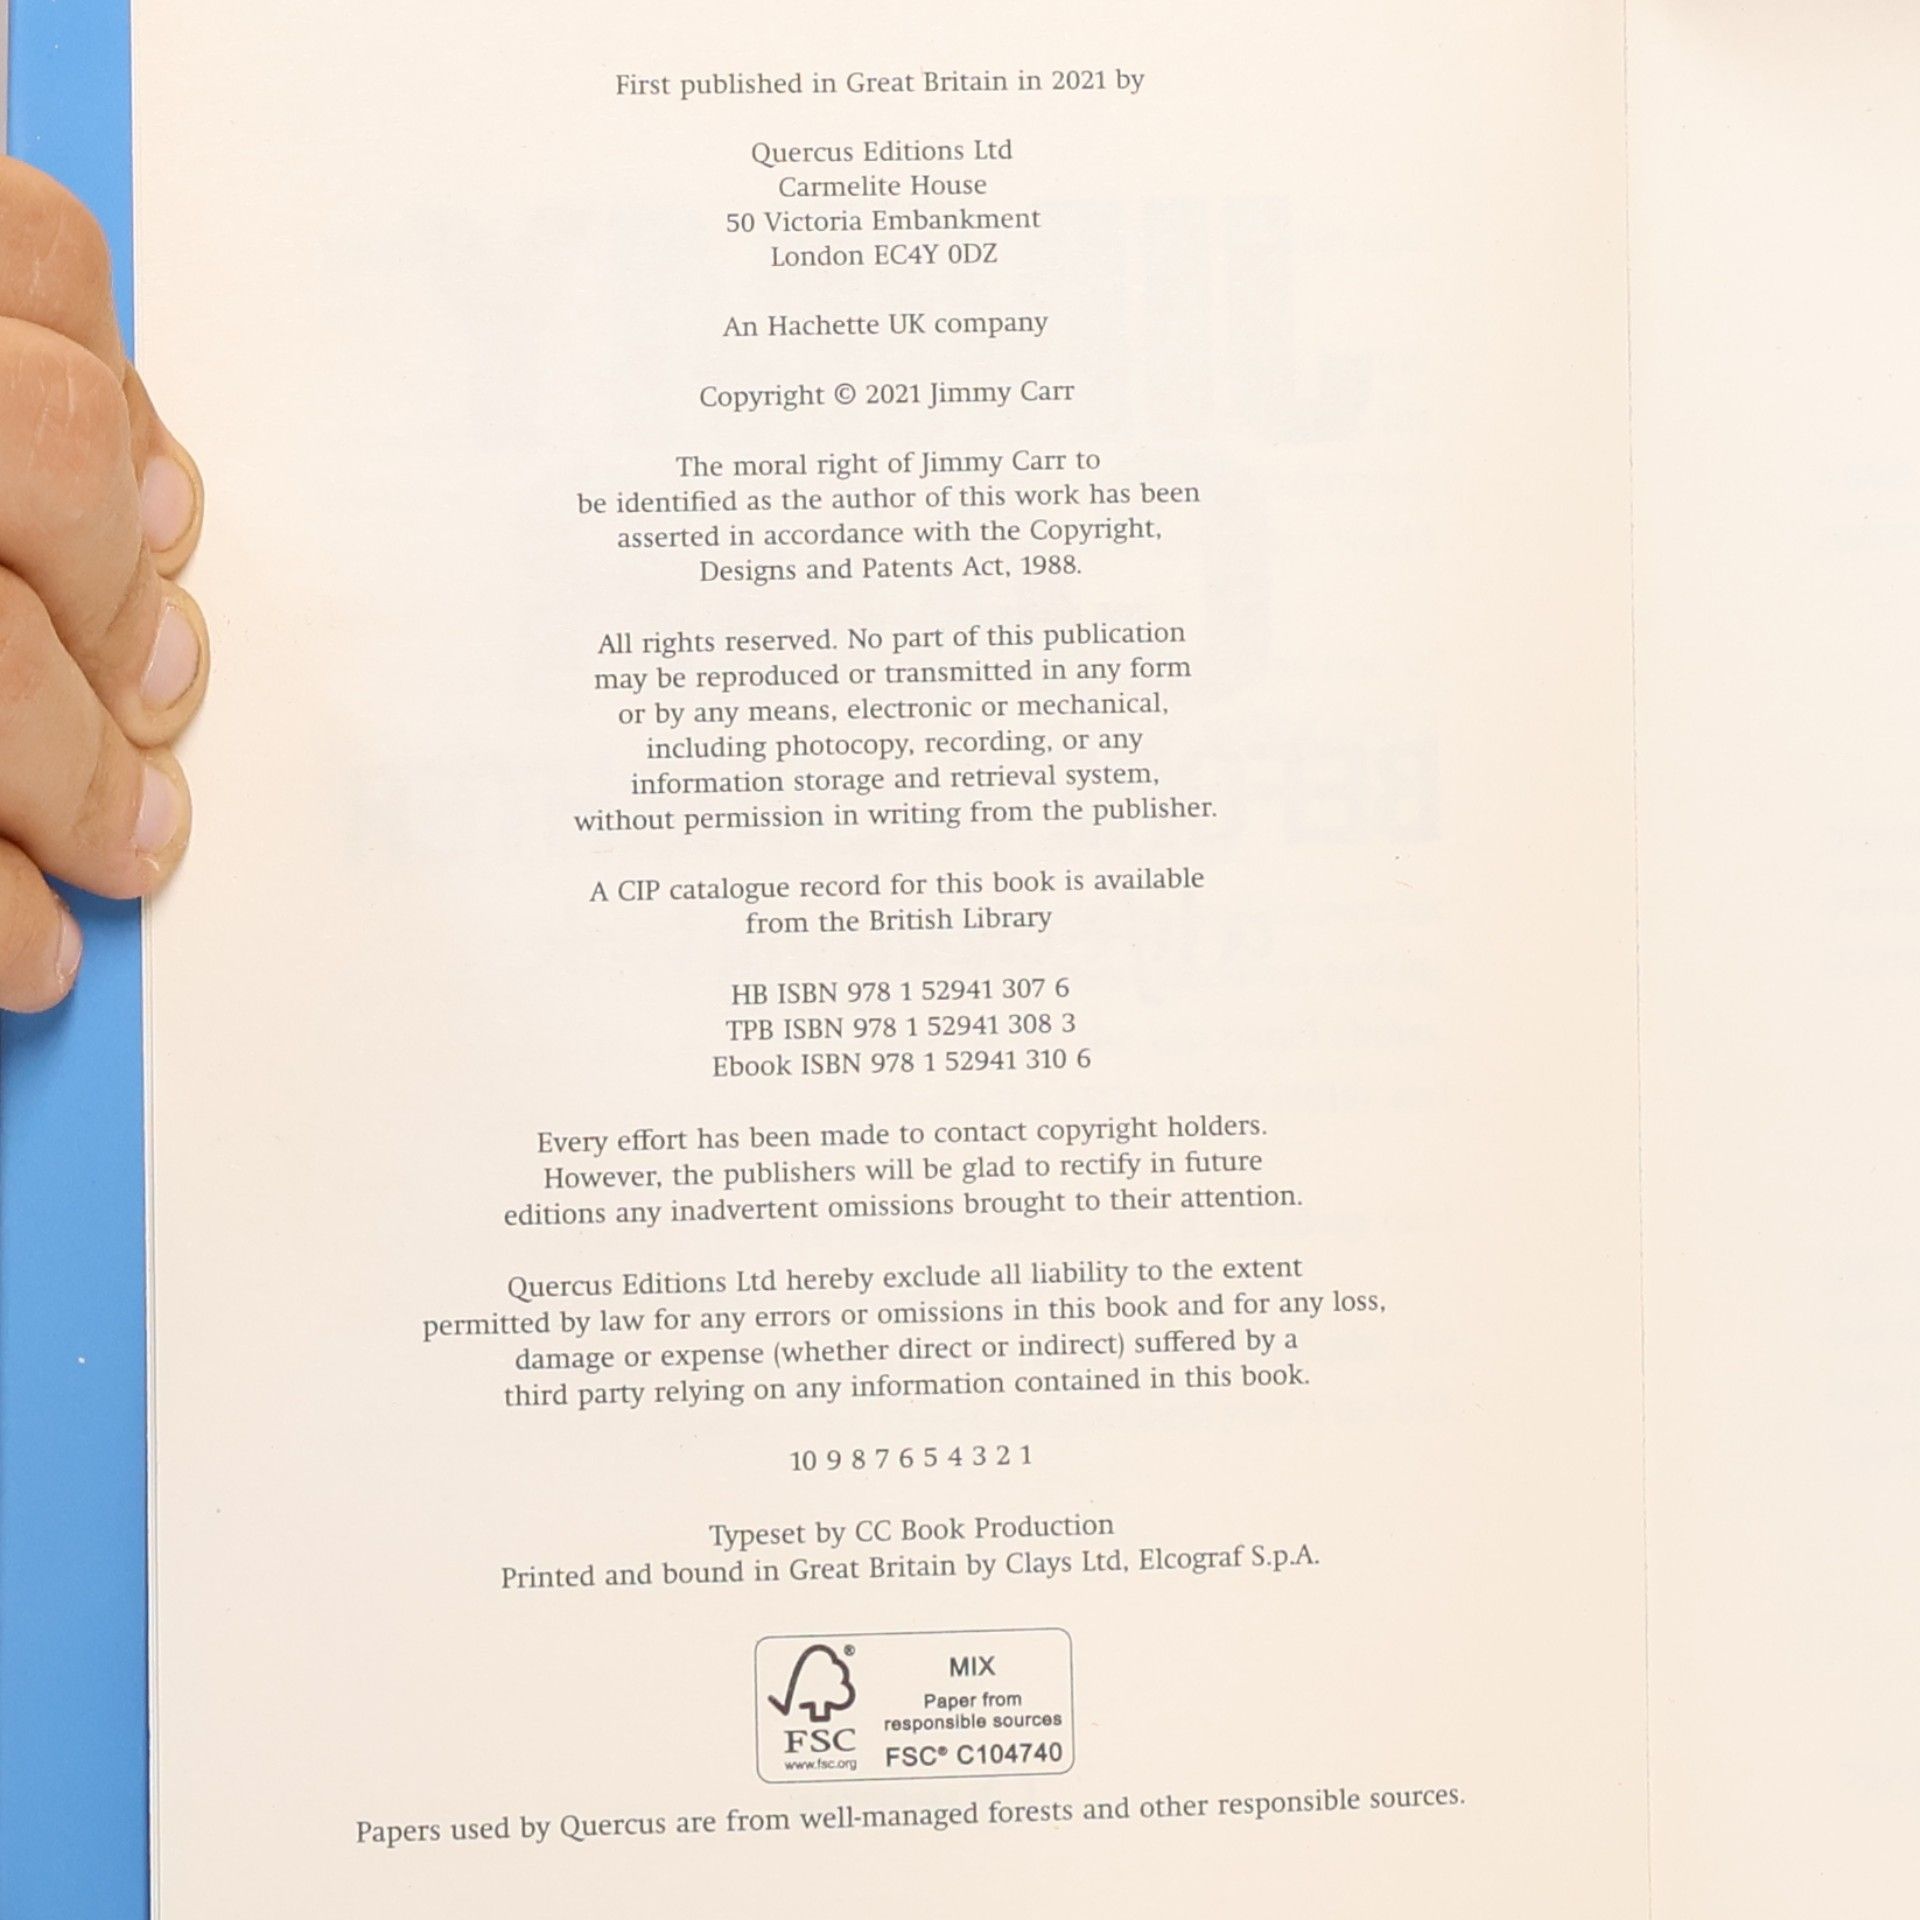 First published in Great Britain in 2021 by
Quercus Editions Ltd
Carmelite House
50 Victoria Embankment
London EC4Y 0DZ
An Hachette UK company
Copyright © 2021 Jimmy Carr
The moral right of Jimmy Carr to
be identified as the author of this work has been
asserted in accordance with the Copyright,
Designs and Patents Act, 1988.
All rights reserved. No part of this publication
may be reproduced or transmitted in any form
or by any means, electronic or mechanical,
including photocopy, recording, or any
information storage and retrieval system,
without permission in writing from the publisher.
A CIP catalogue record for this book is available
from the British Library
HB ISBN 978 1 52941 307 6
TPB ISBN 978 1 52941 308 3
Ebook ISBN 978 1 52941 310 6
Every effort has been made to contact copyright holders.
However, the publishers will be glad to rectify in future
editions any inadvertent omissions brought to their attention.
Quercus Editions Ltd hereby exclude all liability to the extent
permitted by law for any errors or omissions in this book and for any loss,
damage or expense (whether direct or indirect) suffered by a
third party relying on any information contained in this book.
10 9 8 7 6 5 4 3 2 1
Typeset by CC Book Production
Printed and bound in Great Britain by Clays Ltd, Elcograf S.p.A.
®
FSC
www.fsc.org
MIX
Paper from
responsible sources
FSC® C104740
Papers used by Quercus are from well-managed forests and other responsible sources.